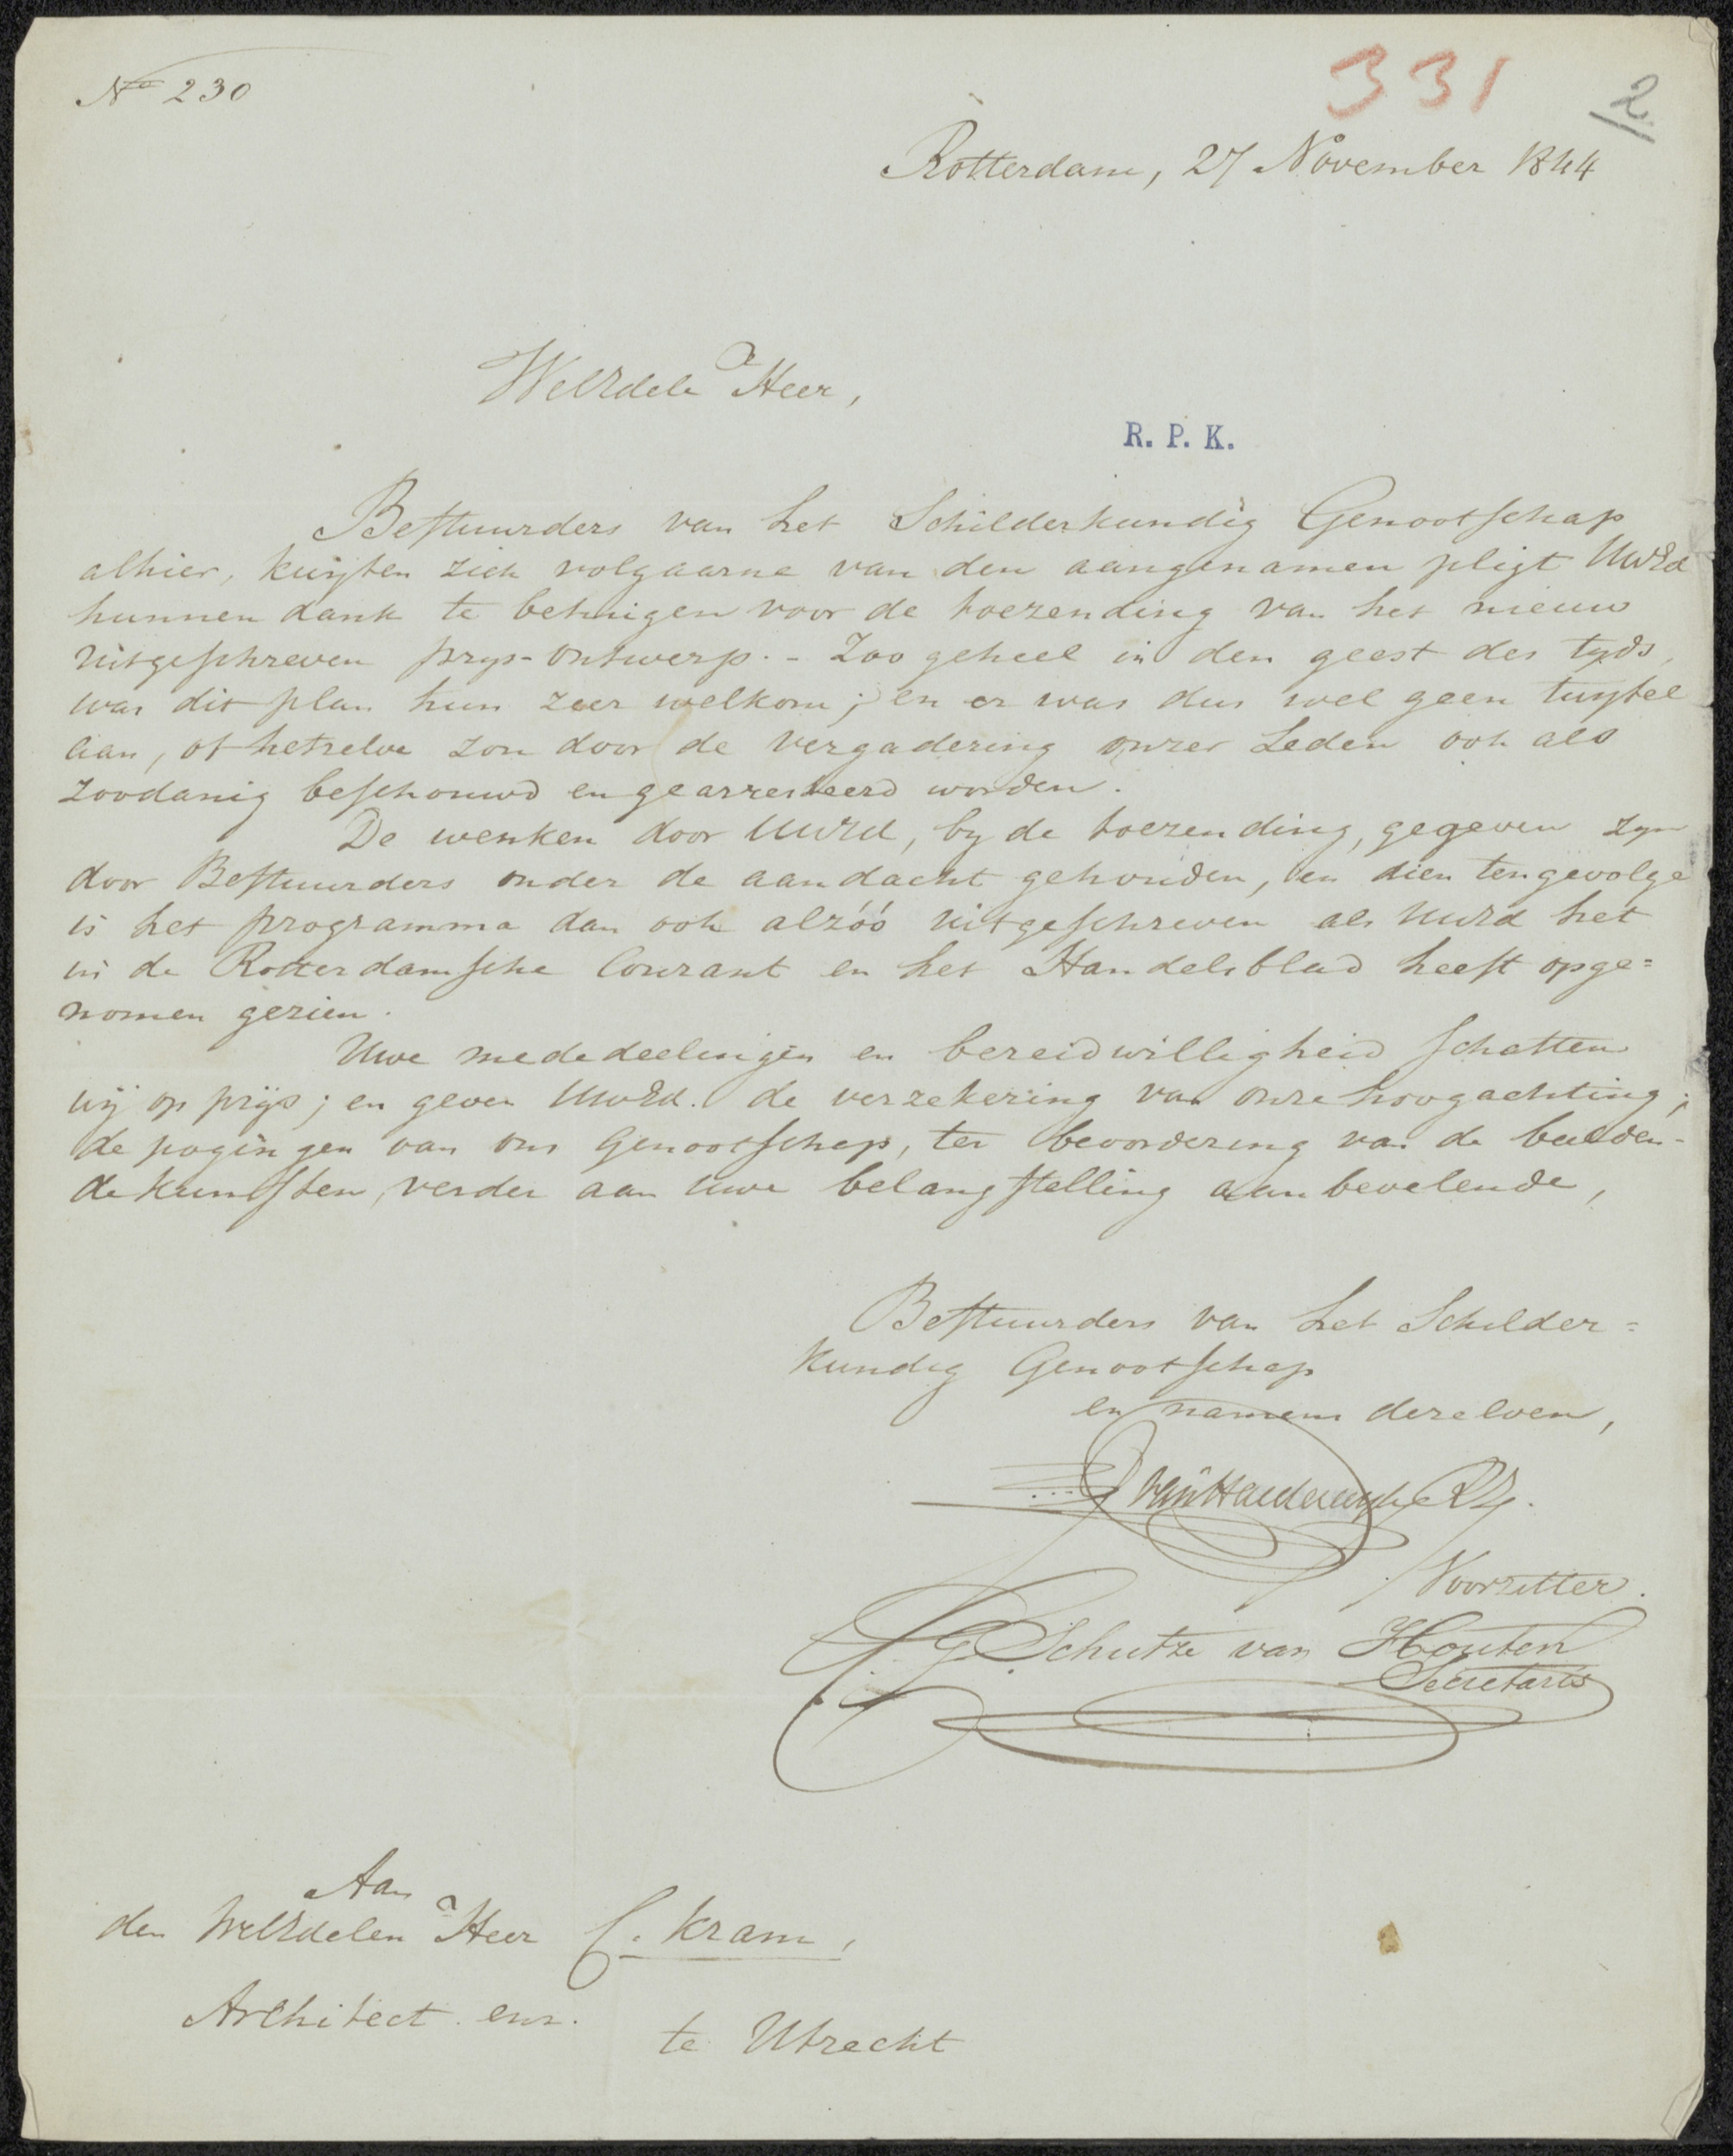 No 230
331
2
Rotterdam, 27 November 1844
WelEdele Heer,
R. P. K.
Bestuurders van het Schilderkundig Genootschap
alhier, kwijten zich volgaarne van den aangenamen pligt UwEd
hunnen dank te betuigen voor de toezending van het nieuw
uitgeschreven prys-ontwerp. - Zoo geheel in den geest des tyds,
was dit plan hun zeer welkom; en er was dus wel geen twyfel
aan, of hetzelve zou door de vergadering onzer Leden ook als
zoodanig beschouwd en gearresteerd worden.
De wenken door UwEd, by de toezending, gegeven zyn
door Bestuurders onder de aandacht gehouden, en dien tengevolge
is het programma dan ook alzóó uitgeschreven als UwEd het
in de Rotterdamsche Courant en het Handelsblad heeft opge=
nomen gezien.
Uwe mededeelingen en bereidwilligheid schatten
wij op prijs; en geven UwEd. de verzekering van onze hoogachting;
de pogingen van ons Genootschap, ter bevordering van de beelden-
de kunsten, verder aan uwe belangstelling aanbevelende,
Bestuurders van het Schilder=
kundig Genootschap
en namens dezelven,
van
Voorzitter.
G Schutze van Houten
Secretaris
Aan
den WelEdelen Heer C. Kram,
Architect enz.
te Utrecht